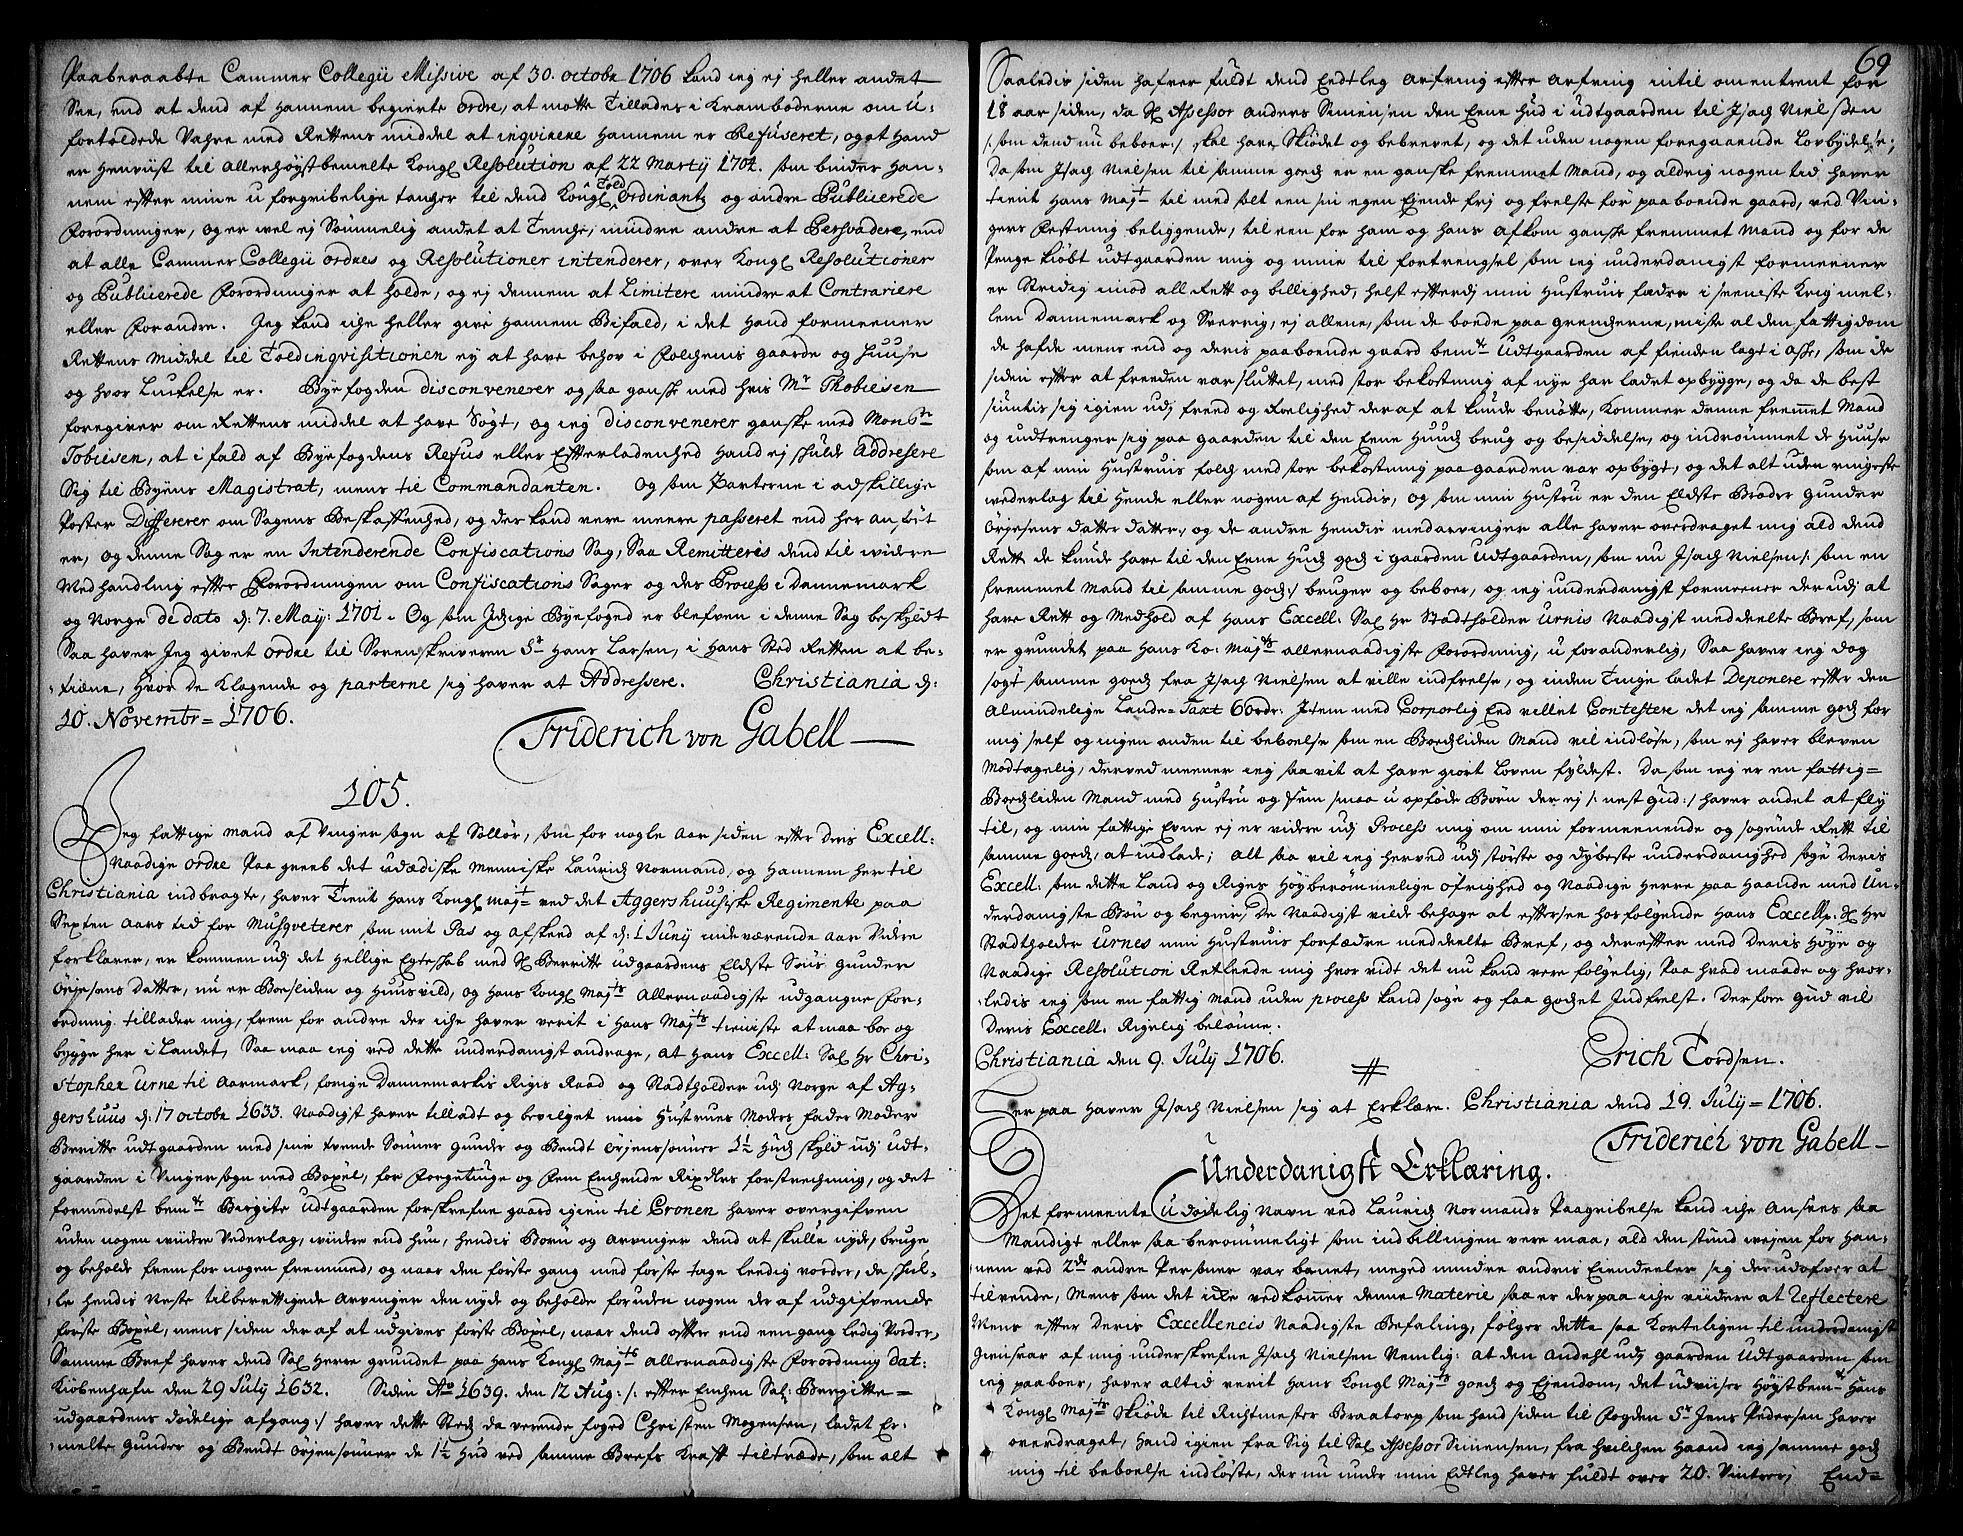 Paaberaabte Cammer Collegii Missive af 30. octobr 1706 kand ieg ej heller andet
See, end at dend af hannem begierte ordre, at motte Tillades i Kramboderne om u-
fortoldede Vahre med Rettens middel at inqvirere hannem er Refuseret, og at hand
er henviist til allerhøystbemelte Kongl Resolution af 22 Martij 1704. som binder han-
nem efter mine u forgribelige tancher til dend Kongl Told Ordinantz og andre Publicerede
Forordninger, og er vel ej Sømmelig andet at Tenche, mindre andre at Persvadere, end
at alle Cammer Collegii ordres og Resolutioner intenderer, over Kongl Resolutioner
og Publicerede Forordninger at holde, og ej dennem at Limitere mindre at Contrariere
eller Forandre. Jeg kand iche heller give hannem Bifald, i det hand formeener
Rettens Middel til Toldinqvisitionen ey at have behov i Folchenis gaarde og huuse
og hvor Luckelse er. Byefogden disconvenerer og saa gansche med hvis Mr Thobiesen
foregiver om Rettens middel at have Søgt, og ieg disconvenerer ganske med Monsr
Tobiesen, at i fald af Byefogdens Refus eller Efterladenhed hand ej skulde Addresere
Sig til Byens Magistrat, mens til Commandanten. Og som Parterne i adskillige
Poster Differerer om Sagens Beskaffenhed, og der kand vere meere passeret end her anført
er, og denne Sag er en Intenderende Confiscations Sag, Saa Remitteris dend til widere
Medhandling efter Forordningen om Confiscations Sager og des Process i Dannemark
og Norge de dato d: 7. May: 1701. Og som Ichige Byefoged er blefven i denne Sag beskyldt
Saa haver Jeg givet ordre til Sorenskriveren Sr Hans Larsen, i hans Sted Retten at be-
tiene, hvor de Klagende og parterne sig haver at Addressere. Christiania d:
10. Novembr = 1706.
Friderich von Gabell
105.
Jeg fattige mand af Vinger sogn af Solløer, som for nogle aar siden efter deris Excell:
Naadige ordre Paa greeb det udædiske menniske Laurids Normand, og hannem her til
Christiania indbragte, haver Tient hans Kongl Majt ved det Aggershuusiske Regimente paa
Sexten aars tid for Musqveterer som mit Pas og afskeed af d: 1 Junij indeværende aar Videre
forklarer, er kommen udj det hellige Egteskab med Sl Berritte udgaardens Eldste Søns gunder
Örjesens datter, nu er Boesliden og huusvild, og hans Kongl Majts allernaadigste udgangne For-
ordning tillader mig, frem for andre der iche haver verit i hans Majts tieniste at maa boe og
bygge her i Landet, Saa maa ieg ved dette underdanigst andrage, at hans Excell: Sal Hr Chri-
stopher Urne til Aarmark, forrige Dannemarkis Rigis Raad og Stadtholder udj Norge af Ag-
gershuus d: 17 octobr 1633. Naadigst haver tilladt og bevilget min Hustrues Moders fader Moder
Berritte udtgaarden med sine tvende Sønner Gunder og Bendt Örjenssønner 1½ hud skyld udj udt-
gaarden i Vingersogn med Boxel, for Forgetinge og Fem Enchende Rixdlrs forstrechning, og det
formedelst bemte Birgite Udtgaarden forskrefne gaard igien til Cronen haver overgifven
uden nogen viidre Vederlag, viidre end hun, hendis Børn og Arvinger dend at skulle nyde, bruge
og beholde frem for nogen fremmed, og naar den første gang med første tage leedig vorder, da skul-
le hendis Neste tilberettigede Arvinger den nyde og beholde foruden nogen der af udgifvende
første Boxel, mens siden der af at udgives første Boxel, naar dend offter end een gang ledig vorder,
Samme Bref haver dend Sal Herre grundet paa hans Kongl Majts allernaadigste Forordning dat:
Kiøbenhafn den 29 July 1632. Siden Ao 1639. den 12 Aug: /: efter Enchen Sal: Bergitte =
udgaardens dødelige afgang :/ haver dette Steds da verende foged Christen Mogensen, ladet Er-
melte Gunder og Bendt Örjensønner de 1½ hud ved samme Brefs Kraft tiltræde, som alt
69
Saaledis siden hafver fuldt dend Eedtleg Arfving efter Arfving intil omentrent for
18 aar siden, da Sl Assessor Anders Simensen den Eene hud i udtgaarden til Isach Nielssen
/: som dend nu beboer :/ skal have Skiødet og bebrevet, og det uden nogen foregaaende Lovbydelse;
Da som Isach Nielsen til samme gods er en ganske fremmet Mand, og aldrig nogen tid haver
tient hans Majt til med solt een sin egen Eyende frj og frelste før paaboende gaard, ved Vin-
gers Festning beliggende, til een for ham og hans afkom ganske fremmet Mand og for de
Penge kiøbt udtgaarden mig og mine til fortrengsel som ieg underdanigst formeener
er Stridig imod all Rett og billighed, helst efterdj min Hustruis fædre i seeniste Krig mel-
lem Dannemark og Sverrig, ej alleene, som de boede paa Grendserne, miste al den fattigdom
de hafde mens end og deris paaboende gaard bemte Udtgaarden af fienden lagt i Aske, som de
siden efter at freeden var sluttet, med stor bekostning af nye har ladet opbygge, og da de best
siuntis sig igien udj freed og Roelighed der af at kunde benøtte, Kommer denne fremmet Mand
og indtrenger sig paa gaarden til den Eene Huuds brug og besiddelse, og indrømmet de Huuse
som af min Hustruis folch med stor bekostning paa gaarden var opbygt, og det alt uden ringeste
vederlag til hende eller nogen af hendis, og som min Hustru er den Eldste Broder Gunder
Örjesens datter datter, og de andre hendis medarvinger alle haver overdraget mig ald dend
Rett de kunde have til den Eene Huds gods i gaarden Udtgaarden, som nu Isach Nielsen /: som en
fremmet Mand til samme gods :/ bruger og beboer, og ieg underdanigst formeener der udj at
have Rett og Medhold af hans Excell: Sal Hr Stadtholder Urnis Naadigst meddeelte Bref, som
er grundet paa hans Ko: Majts allernaadigste Forordning, u foranderlig, Saa haver ieg dog
søgt samme gods fra Isach Nielsen at ville indfrelse, og inden Tinge ladet Deponere efter den
Almindelige Lande = Taxt 60rdr: Item med Corporlig Eed villet Contestere det ieg samme gods for
mig self og ingen anden til beboelse som en Boesliden Mand vil indløse, som ej haver bleven
Modtagelig, derved meener ieg saa vit at have giort Loven fyldest. Da som ieg er en fattig =
Boesliden Mand med Hustru og Fem smaa u opføde Børn der ej /: nest Gud :/ haver andet at fly
til, og min fattige Evne ej er videre udj Process mig om min formeenende og søgende Rett til
samme gods, at indlade; alt saa vil ieg herved udj største og dybeste underdanighed søge deris
Excell: som dette Land og Riges Høyberømmelige Øfrighed og Naadige Herre paa haande med Un-
derdanigste Bøn og begier, De Naadigst vilde behage at eftersee hosfølgende hans Excell: Sl Hr
Stadtholder Urnes min Hustruis forfædre meddeelte Bref, og derefter med deris Høye og
Naadige Resolution Retleede mig hvor vidt det nu kand vere følgelig, Paa hvad maade og hvor-
ledis ieg som en fattig Mand uden process kand søge og faa godset Indfrelst. Derfore Gud vil
deris Excell. Rigelig belønne.
Christiania den 9. July 1706. Erich Tordsen.
Her paa haver Isach Nielsen sig at Erklære. Christiania dend 19. July = 1706.
Friderich von Gabell
Underdanigst Erklæring.
Det formeente Udødelig Navn ved Laurids Normands Paagribelse kand iche ansees saa
Mandigt eller saa berømmeligt som indbillingen vere maa, ald den stund vejen for han-
nem ved 2de andre Personer var banet, meged mindre andris Eiendeeler sig derudofver at
tilvende, Mens som det icke vedkommer denne Materie saa er derpaa iche viidere at Reflectere
Mens efter deris Excellencis Naadigste Befaling, følger dette saa Korteligen til underdanigst
giensvar af mig underskrefne Isach Nielsen Nemlig: at den Andehl udj gaarden Udtgaarden som
ieg paaboer, haver altid verit Hans Kongl Majts gods og Ejendom, det udviiser Høystbemte Hans
Kongl Majts Skiøde til Richtmester Braatorp som hand siden til Fogden Sr Jens Pedersen haver
overdraget, hand igien fra Sig til Sal Assessor Simensen, fra hvilchen haand ieg samme gods
mig til beboelse indløste, der nu under min Edtleg haver fuldt over 20. Vintrer; End=